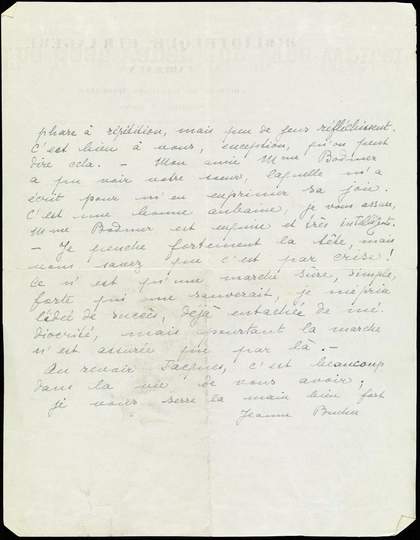 phare à répétition, mais peu de gens réfléchissent.
C'est bien à vous, exception, qu'on peut
dire cela. — Mon amie Mme Bodmer
a pu voir votre sœur, laquelle m'a
écrit pour m'en exprimer sa joie.
C'est une bonne aubaine, je vous assure,
Mme Bodmer est exquise et très intelligte.
— Je penche fortement la tête, mais
vous savez que c'est par crise!
Ce n'est qu'une marche sûre, simple,
forte qui me sauverait, je méprise
l'idée de succès, déjà entachée de mé-
diocrité, mais pourtant la marche
n'est assurée que par là. —
Au revoir Jacques, c'est beaucoup
dans la vie de vous avoir;
je vous serre la main bien fort
Jeanne Bucher